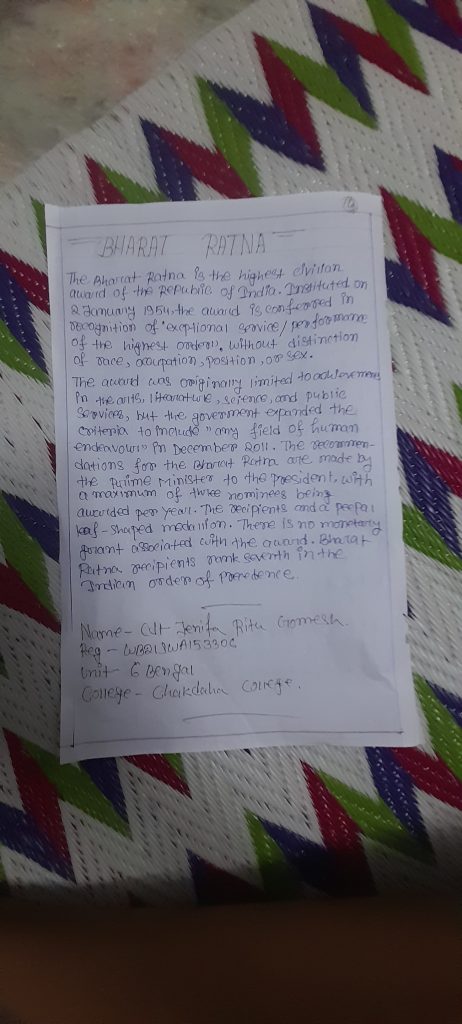 BHARAT RATNA
The Bharat Ratna is the highest civilian
award of the Republic of India. Instituted on
2 January 1954, the award is conferred in
recognition of "exceptional service/performance
of the highest order", without distinction
of race, occupation, position, or sex.
The award was originally limited to achievements
in the arts, literature, science, and public
services, but the government expanded the
criteria to include "any field of human
endeavour" in December 2011. The recommen-
dations for the Bharat Ratna are made by
the Prime Minister to the president, with
a maximum of three nominees being
awarded per year. The recipients and a peepal
leaf-shaped medallion. There is no monetary
grant associated with the award. Bharat
Ratna recipients rank seventh in the
Indian order of precedence.
Name - Cdt Jenifa Ritu Gomesh.
Reg - WB21SWA153306
Unit - 6 Bengal
College - Chakdaha College.